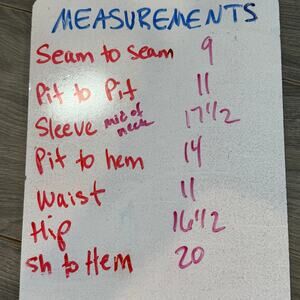 MEASUREMENTS
Seam to seam 9
Pit to Pit 11
Sleeve mid of neck 17 1/2
Pit to hem 14
Waist 11
Hip 16 1/2
Sh to Hem 20